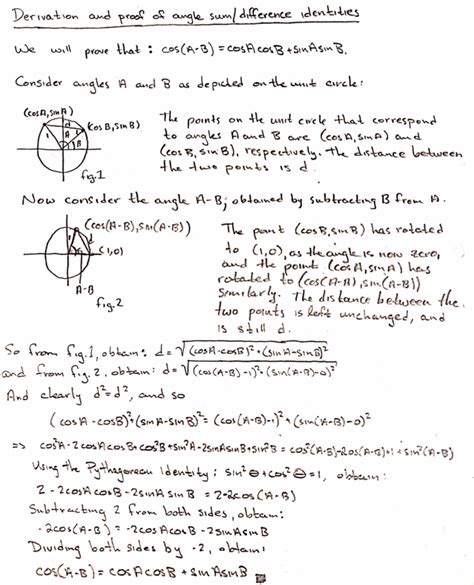 Derivation and proof of angle sum/difference identities
We will prove that : cos(A-B) = cosAcosB + sinAsinB.
Consider angles A and B as depicted on the unit circle:
(cosA, sinA)
d
(cosB, sinB)
A
B
1
fig.1
The points on the unit circle that correspond
to angles A and B are (cosA, sinA) and
(cosB, sinB), respectively. The distance between
the two points is d.
Now consider the angle A-B; obtained by subtracting B from A.
(cos(A-B), sin(A-B))
d
(1,0)
A-B
fig.2
The point (cosB, sinB) has rotated
to (1,0), as the angle is now zero,
and the point (cosA, sinA) has
rotated to (cos(A-B), sin(A-B))
similarly. The distance between the
two points is left unchanged, and
is still d.
So from fig.1, obtain: d = √(cosA-cosB)² + (sinA-sinB)²
and from fig.2, obtain: d = √(cos(A-B)-1)² + (sin(A-B)-0)²
And clearly d² = d², and so
(cosA-cosB)² + (sinA-sinB)² = (cos(A-B)-1)² + (sin(A-B)-0)²
=> cos²A - 2cosAcosB + cos²B + sin²A - 2sinAsinB + sin²B = cos²(A-B) - 2cos(A-B) + 1 + sin²(A-B)
Using the Pythagorean Identity: sin²θ + cos²θ = 1, obtain:
2 - 2cosAcosB - 2sinAsinB = 2 - 2cos(A-B)
Subtracting 2 from both sides, obtain:
-2cos(A-B) = -2cosAcosB - 2sinAsinB
Dividing both sides by -2, obtain:
cos(A-B) = cosAcosB + sinAsinB